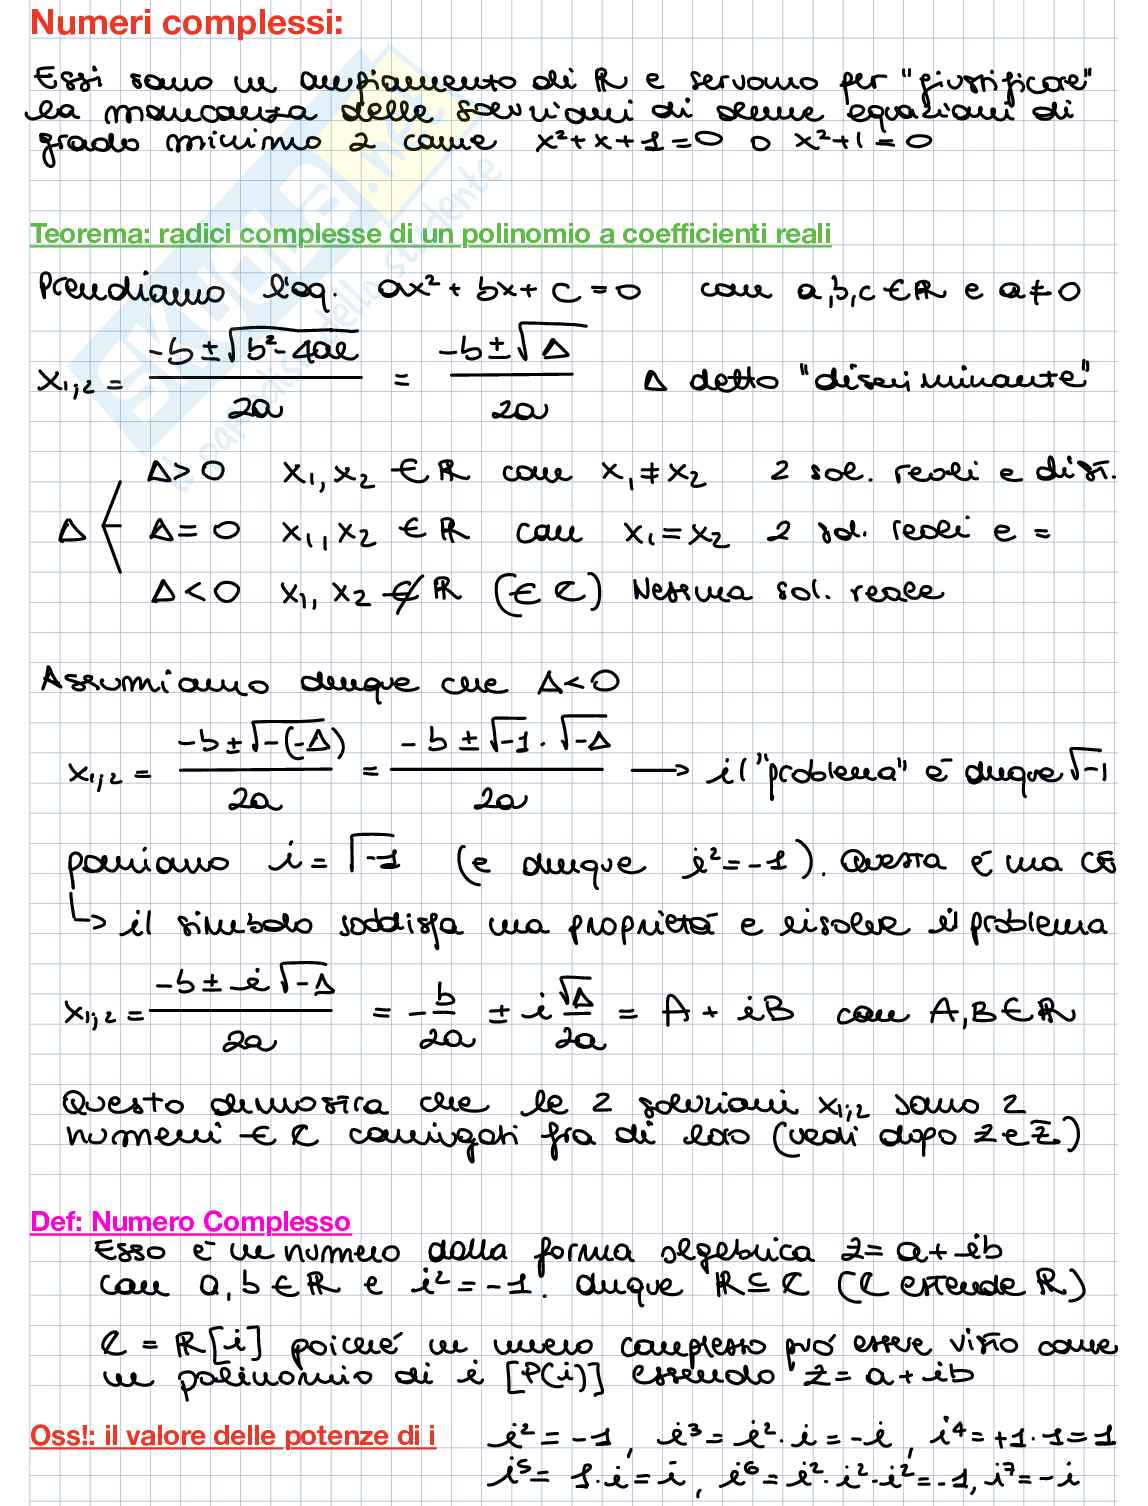 Numeri complessi:
Essi sono un ampiamento di ℝ e servono per "giustificare"
la mancanza delle soluzioni di alcune equazioni di
grado minimo 2 come x²+x+1=0 o x²+1=0
Teorema: radici complesse di un polinomio a coefficienti reali
Prendiamo l'eq. ax²+bx+c=0 con a,b,c ∈ ℝ e a≠0
x₁,₂ = (-b±√(b²-4ac))/2a = (-b±√Δ)/2a Δ detto "discriminante"
Δ>0 x₁,x₂ ∈ ℝ con x₁≠x₂ 2 sol. reali e dist.
Δ Δ=0 x₁,x₂ ∈ ℝ con x₁=x₂ 2 sol. reali e =
Δ<0 x₁,x₂ ∉ ℝ (∈ ℂ) Nessuna sol. reale
Assumiamo dunque che Δ<0
x₁,₂ = (-b±√-(-Δ))/2a = (-b±√-1·√-Δ)/2a → il "problema" è dunque √-1
poniamo i=√-1 (e dunque i²=-1). Questa è una CE
↳ il simbolo soddisfa una proprietà e risolve il problema
x₁;₂ = (-b±i√-Δ)/2a = -b/2a ± i √Δ/2a = A + iB con A,B ∈ ℝ
Questo dimostra che le 2 soluzioni x₁;₂ sono 2
numeri ∈ ℂ coniugati fra di loro (vedi dopo z e z̄.)
Def: Numero Complesso
Esso è un numero dalla forma algebrica z=a+ib
con a,b ∈ ℝ e i²=-1. dunque ℝ⊆ℂ (ℂ estende ℝ)
ℂ = ℝ[i] poiché un numero complesso può essere visto come
un polinomio di i [P(i)] essendo z=a+ib
Oss!: il valore delle potenze di i i²=-1, i³=i²·i=-i, i⁴=+1·1=1
i⁵=1·i=i, i⁶=i²·i²·i²=-1, i⁷=-i
SKUOLA.net
il paradiso dello studente